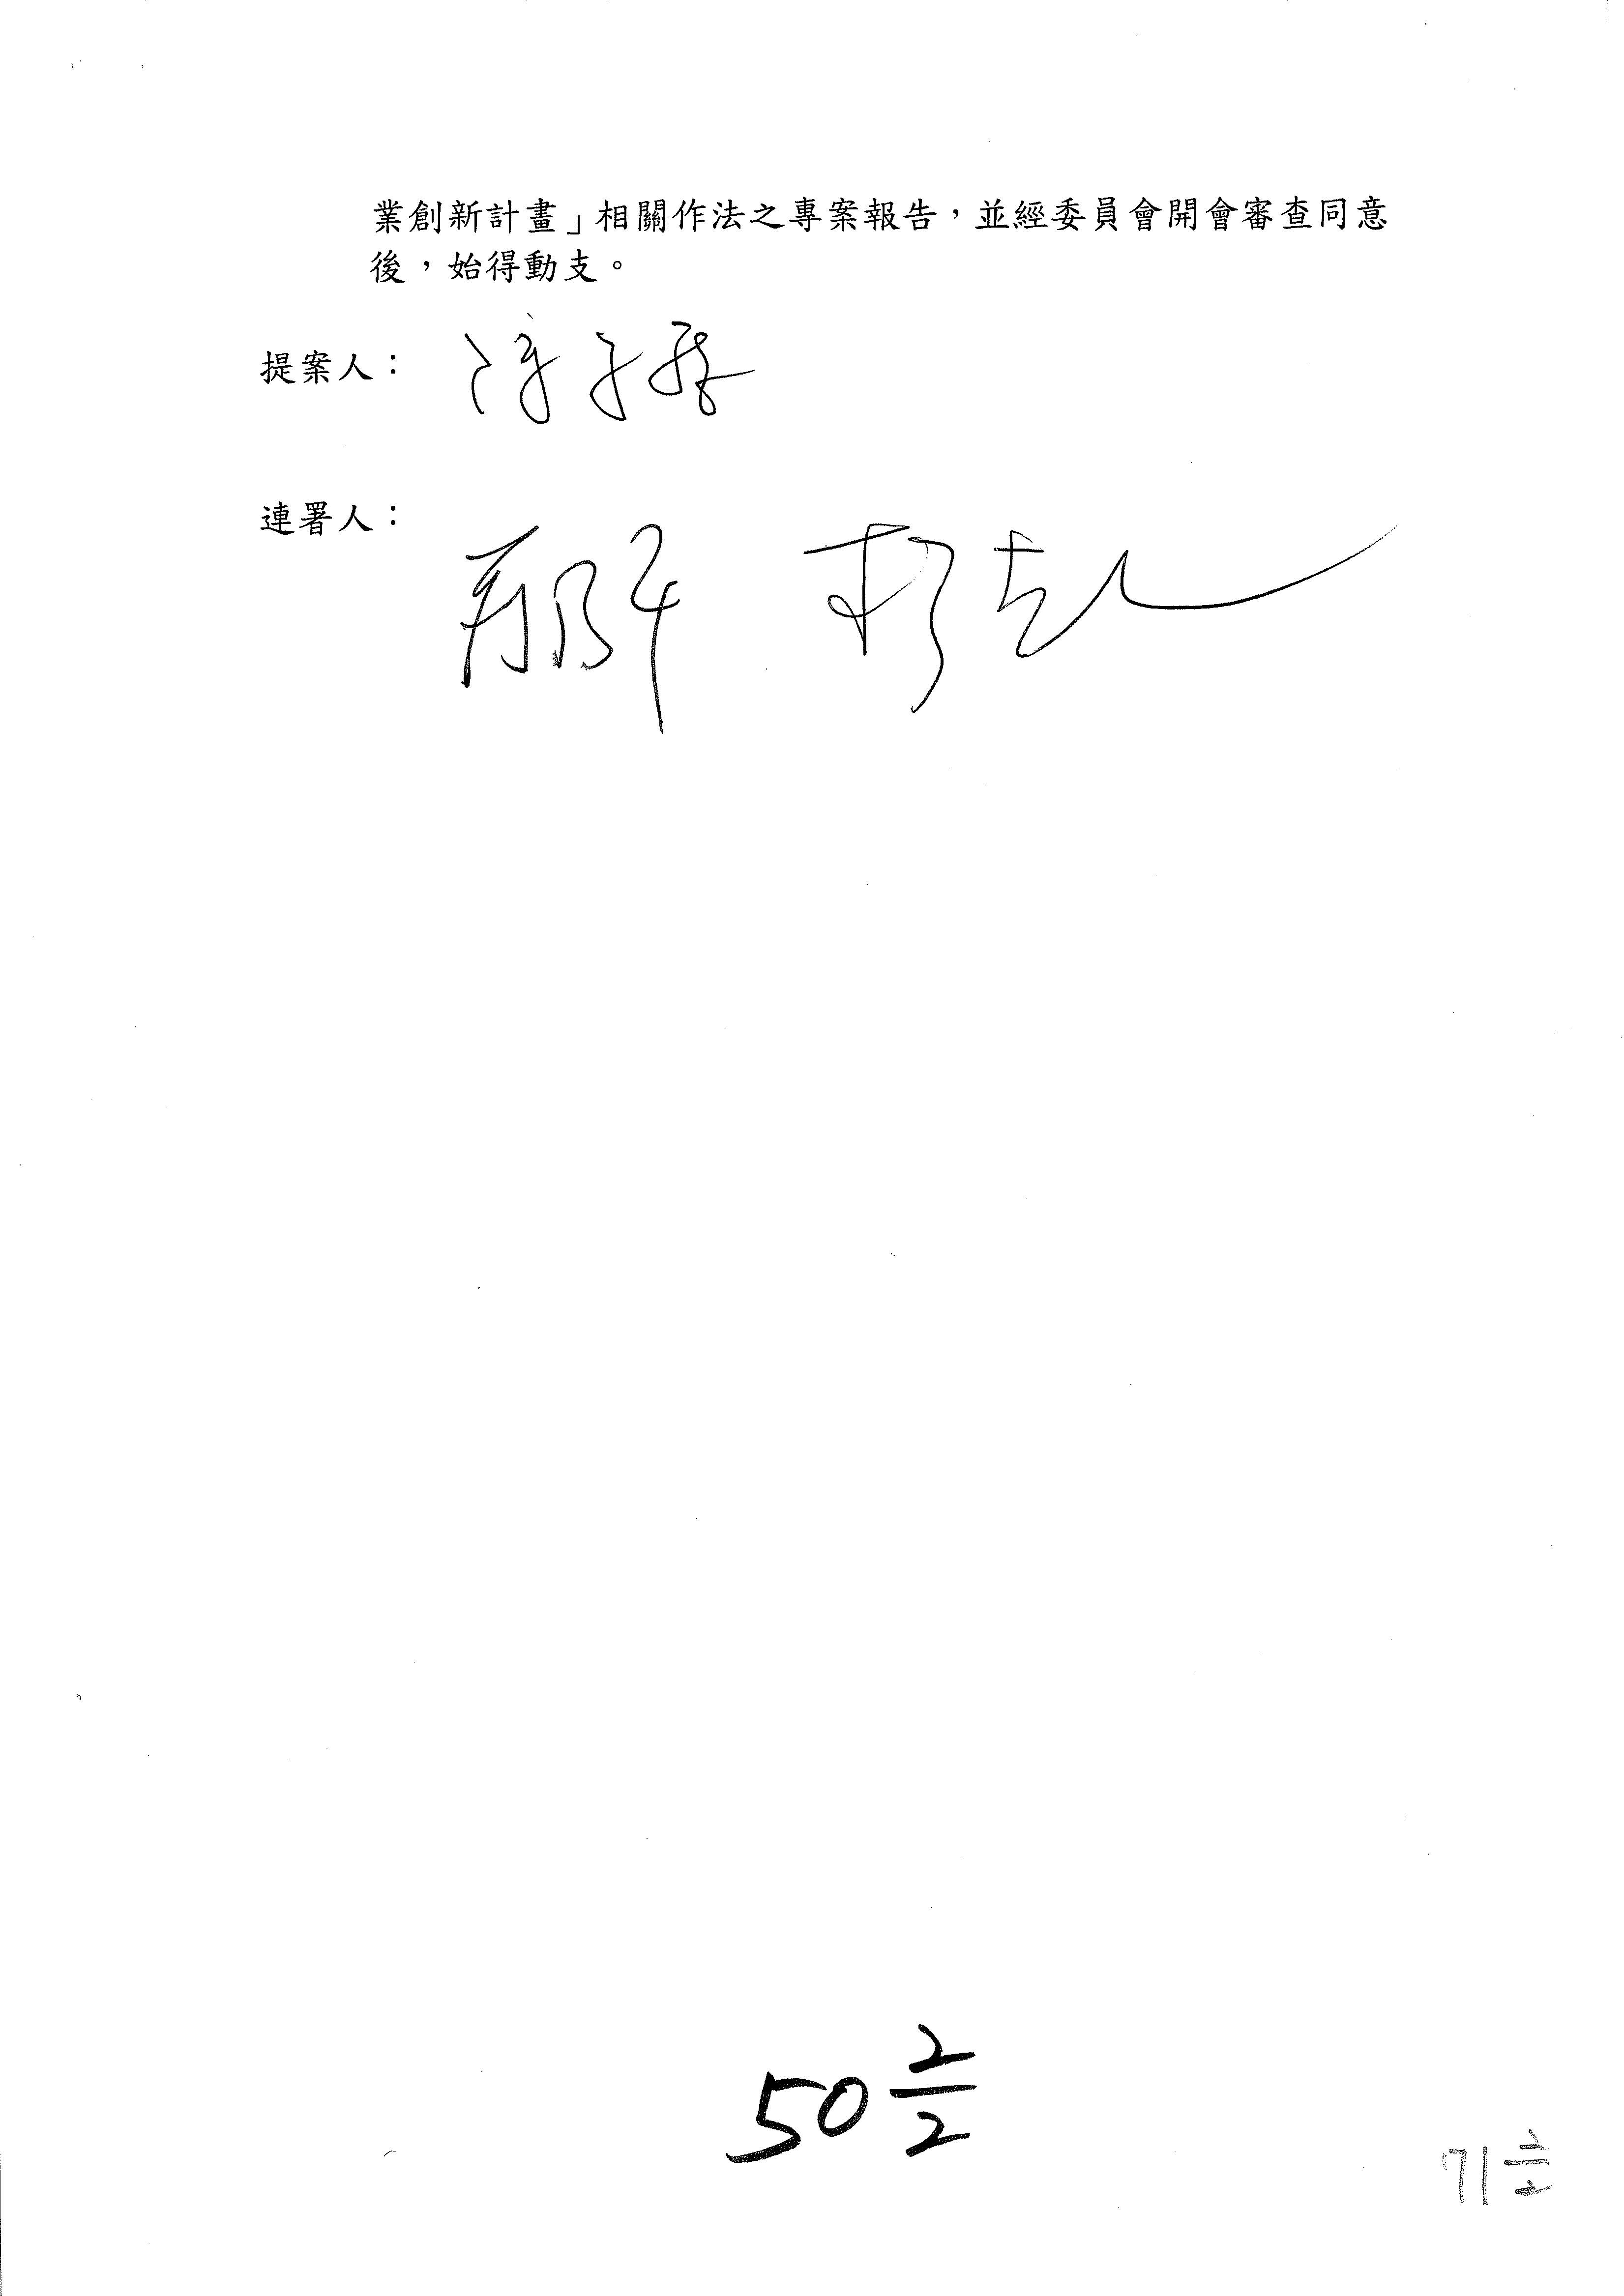 業創新計畫」相關作法之專案報告，並經委員會開會審查同意
後，始得動支。
提案人：
連署人：
50 2/2
71 2/2